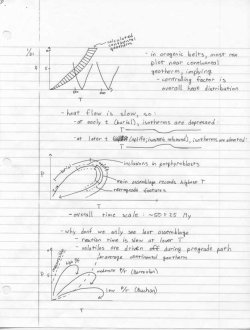 calculated
continental
geotherm
- in orogenic belts, most rxns
plot near continental
geotherm, implying
- controlling factor is
overall heat distribution
T
- heat flow is slow, so:
- at early t (burial), isotherms are depressed
T
- at later t (uplift, isotherm rebound), isotherms are elevated
T
inclusions in porphyroblasts
P
main assemblage records highest T
retrograde features
T
- overall time scale: ~50±25 My
- why don't we only see last assemblage
- reaction time is slow at lower T
- volatiles are driven off during prograde path
average continental geotherm
high P/T
moderate P/T (Barrovian)
P
low P/T (Buchan)
T